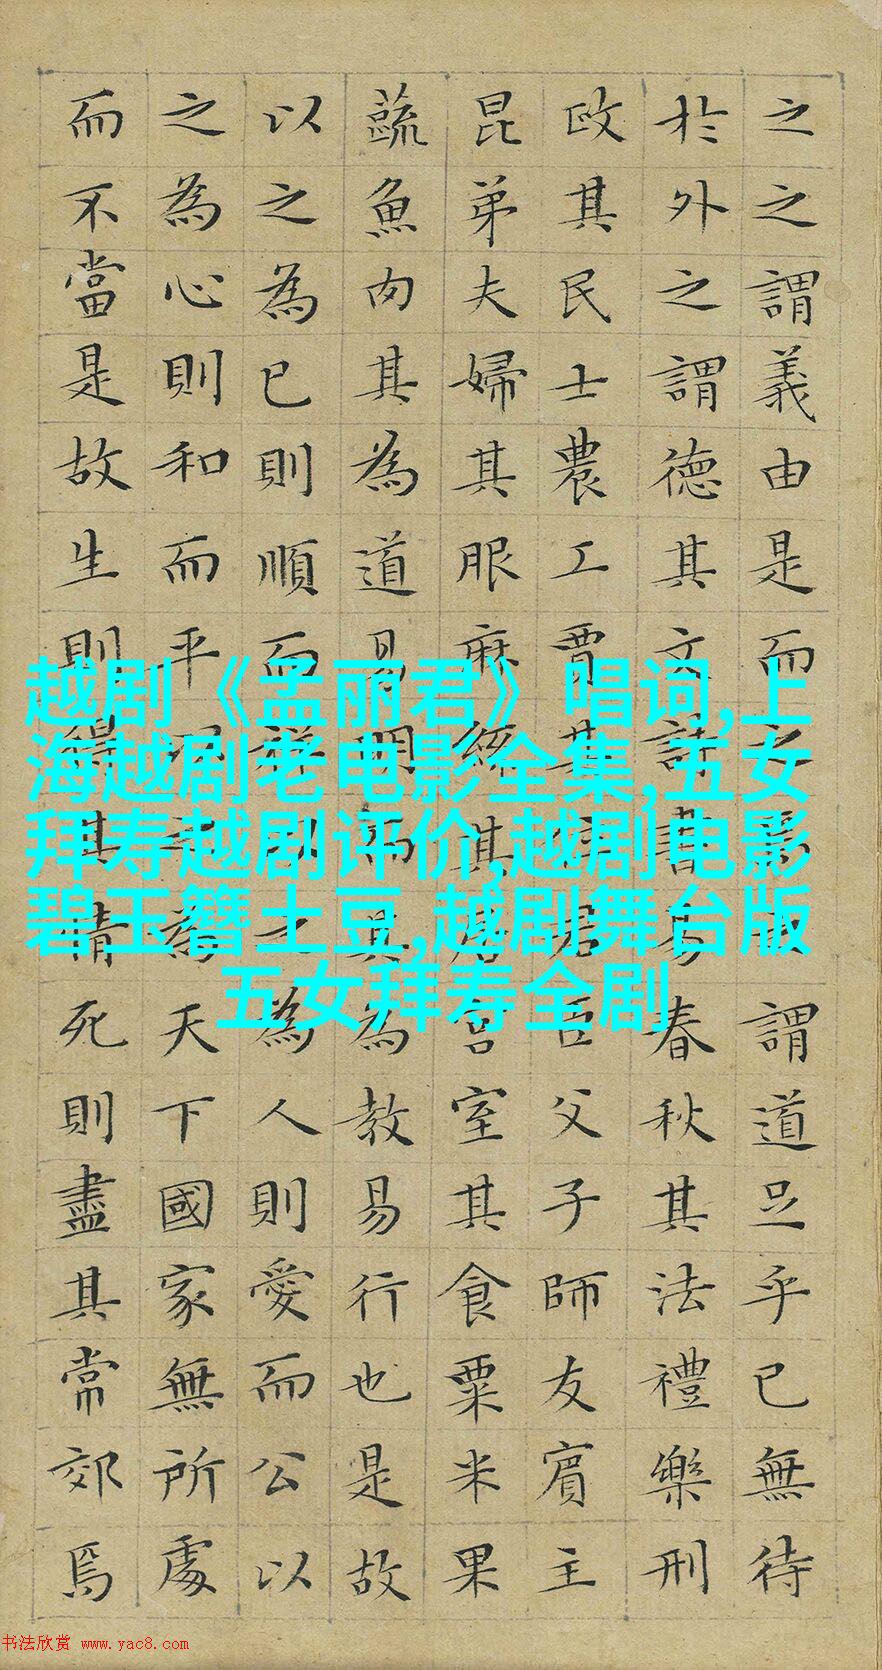 之之謂義由是而之焉之謂道足乎已無待
於外之謂德其文詩書易春秋其法禮樂刑
政其民士農工賈其位君臣父子師友賓主
昆弟夫婦其服麻絲其居宮室其食粟米果
蔬魚肉其為道易明而其為教易行也是故
以之為已則順而祥以之為人則愛而公以
之為心則和而平以之為天下國家無所處
而不當是故生則得其情死則盡其常郊焉
越剧《孟丽君》唱词,上
海越剧老电影全集,五女
拜寿越剧评价,越剧电影
碧玉簪土豆,越剧舞台版
五女拜寿全剧
书法欣赏 www.yac8.com